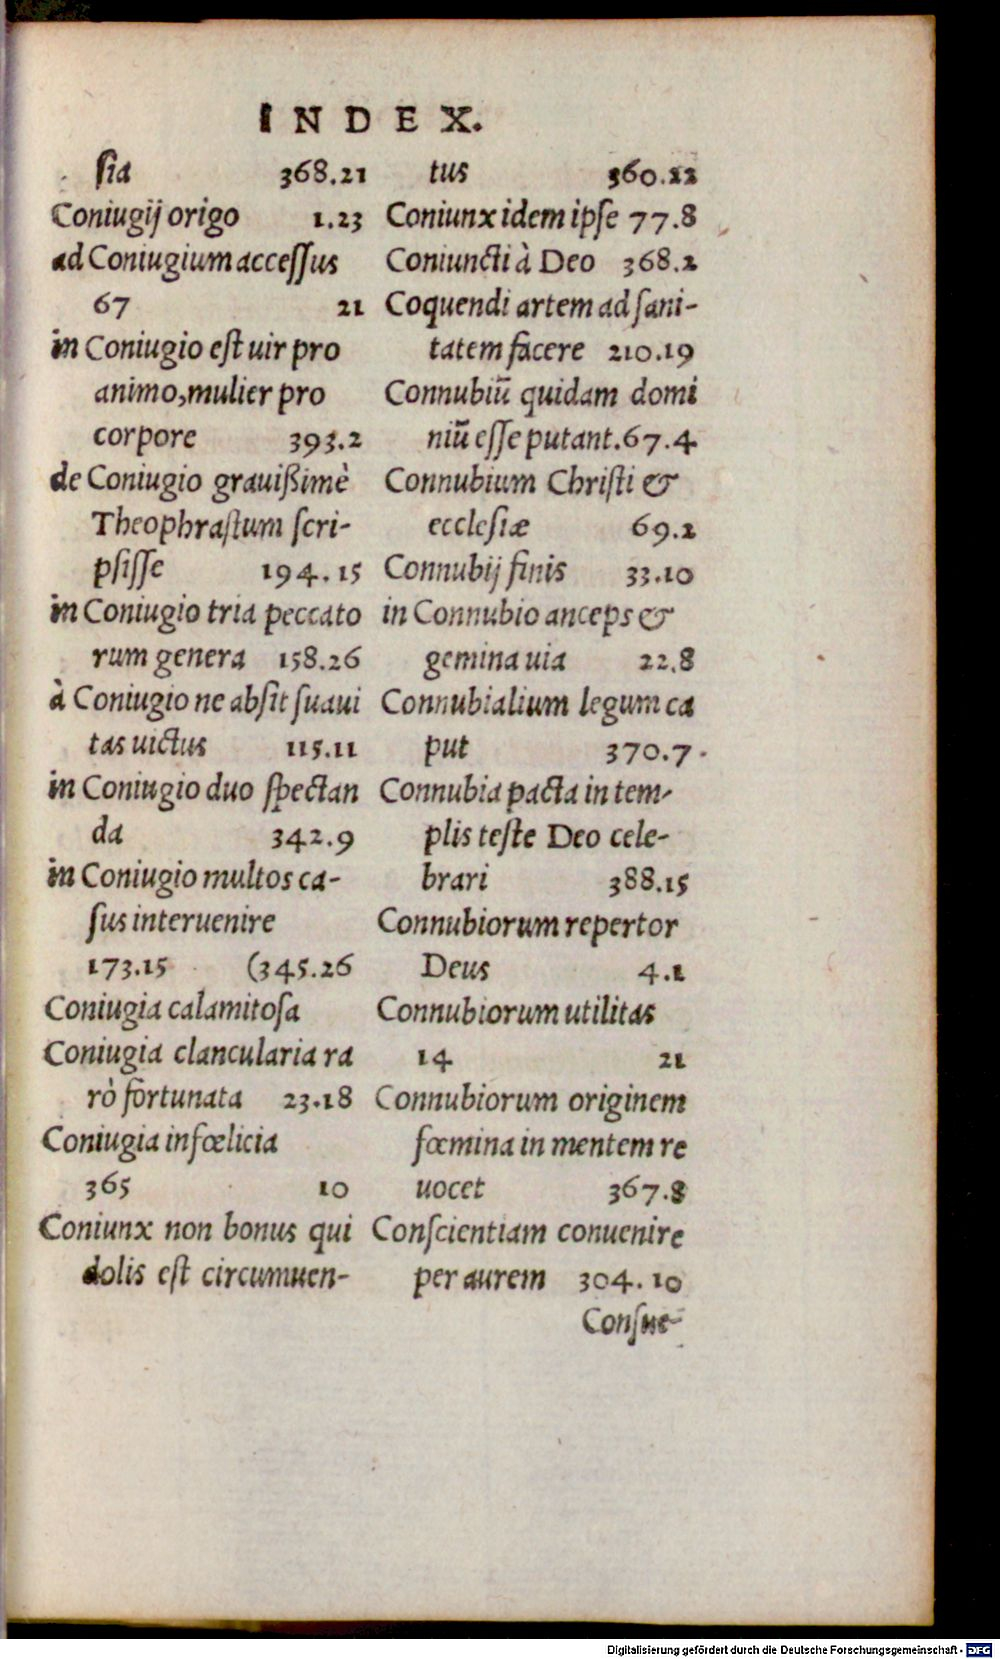 INDEX.
sia 368.21
Coniugij origo 1.23
ad Coniugium accessus
67 21
in Coniugio est uir pro
animo, mulier pro
corpore 393.2
de Coniugio grauißimè
Theophrastum scri-
psisse 194.15
in Coniugio tria peccato
rum genera 158.26
à Coniugio ne absit suaui
tas uictus 115.11
in Coniugio duo spectan
da 342.9
in Coniugio multos ca-
sus interuenire
173.15 (345.26
Coniugia calamitosa
Coniugia clancularia ra
rò fortunata 23.18
Coniugia infœlicia
365 10
Coniunx non bonus qui
dolis est circumuen-
tus 360.22
Coniunx idem ipse 77.8
Coniuncti à Deo 368.2
Coquendi artem ad sani-
tatem facere 210.19
Connubiū quidam domi
niū esse putant. 67.4
Connubium Christi &
ecclesiæ 69.2
Connubij finis 33.10
in Connubio anceps &
gemina uia 22.8
Connubialium legum ca
put 370.7
Connubia pacta in tem-
plis teste Deo cele-
brari 388.15
Connubiorum repertor
Deus 4.1
Connubiorum utilitas
14 21
Connubiorum originem
fœmina in mentem re
uocet 367.8
Conscientiam conuenire
per aurem 304.10
Consue-
Digitalisierung gefördert durch die Deutsche Forschungsgemeinschaft - DFG